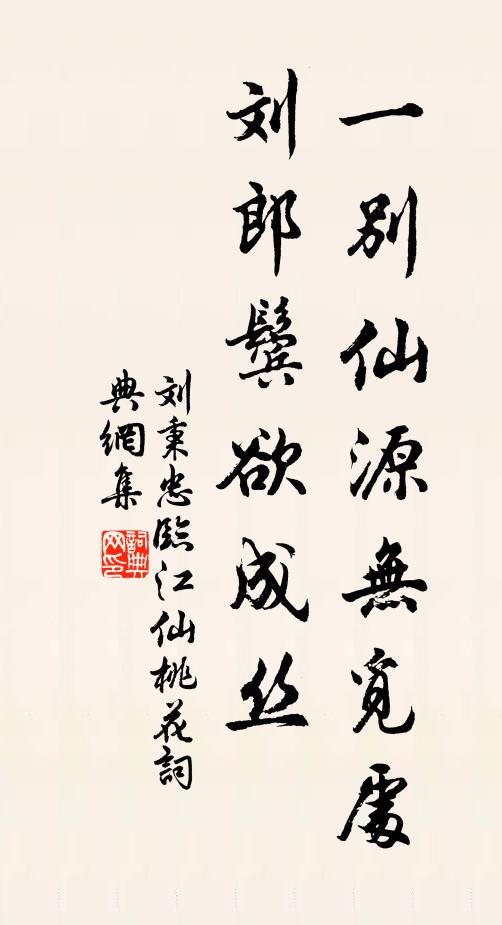 一别仙源無覓處
刘郎鬓欲成丝
刘秉忠臨江仙桃花詞
典網集
詞典网印